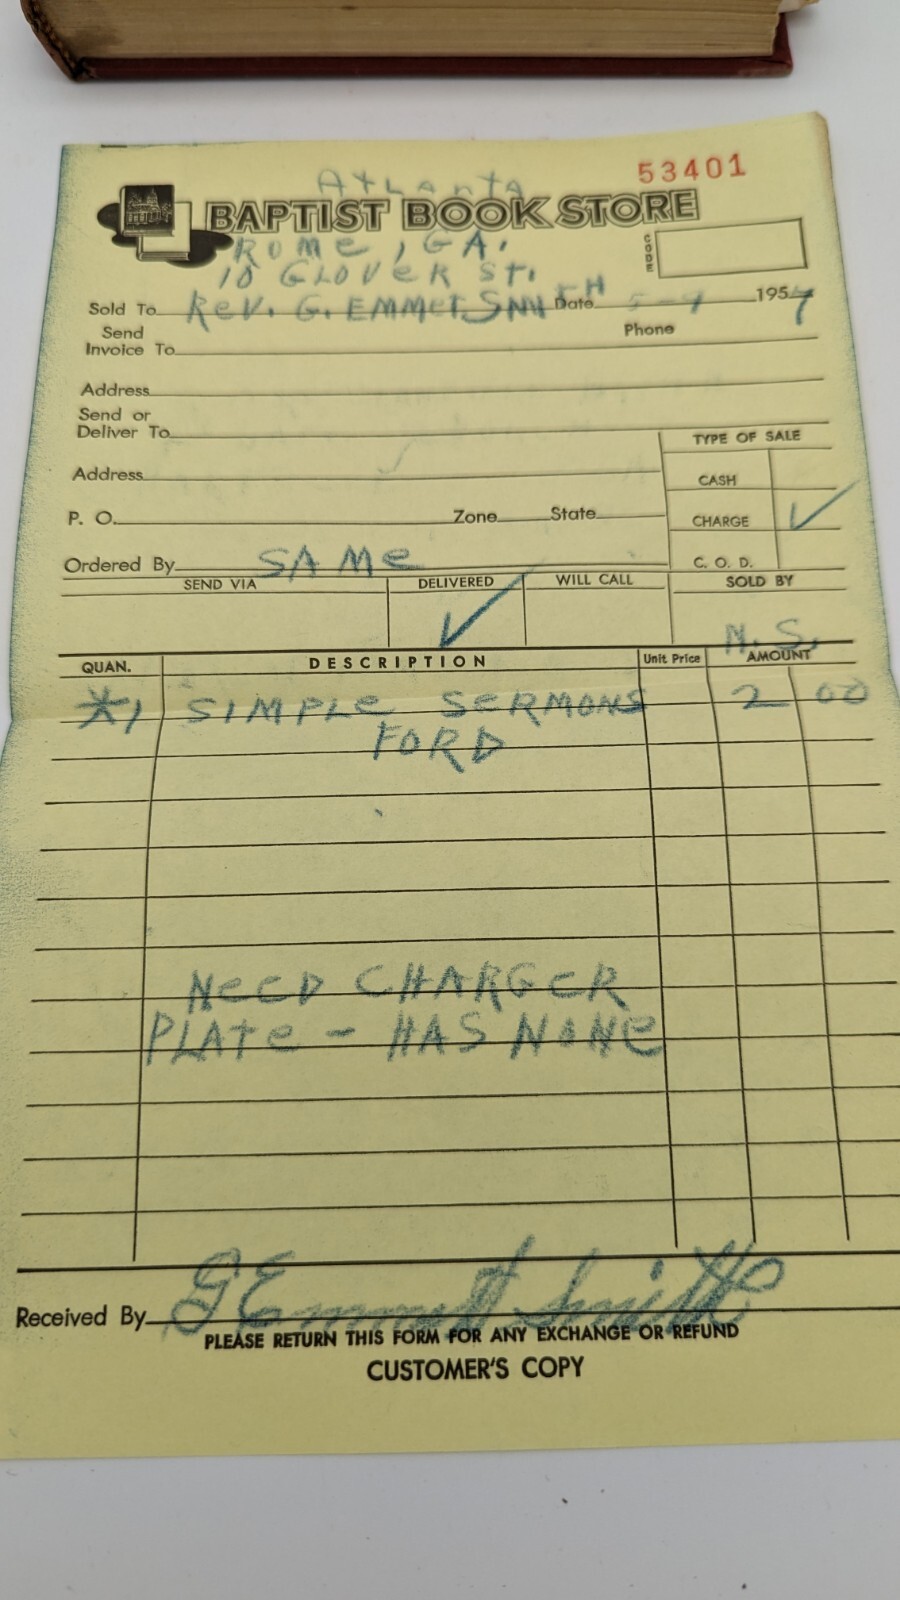 53401
Atlanta
BAPTIST BOOK STORE
CODE
ROME, GA.
10 GLOVER ST.
Sold To Rev. G. EMMET SMITH Date 5-9 1957
Send Invoice To Phone
Address
Send or Deliver To
TYPE OF SALE
Address
CASH
P. O. Zone State
CHARGE ✓
Ordered By SAME
C. O. D.
SEND VIA DELIVERED WILL CALL SOLD BY
✓ N. S.
QUAN. DESCRIPTION Unit Price AMOUNT
*1 SIMPLE SERMONS 2 00
FORD
NEED CHARGER
PLATE - HAS NONE
Received By G Emmett Smith
PLEASE RETURN THIS FORM FOR ANY EXCHANGE OR REFUND
CUSTOMER'S COPY